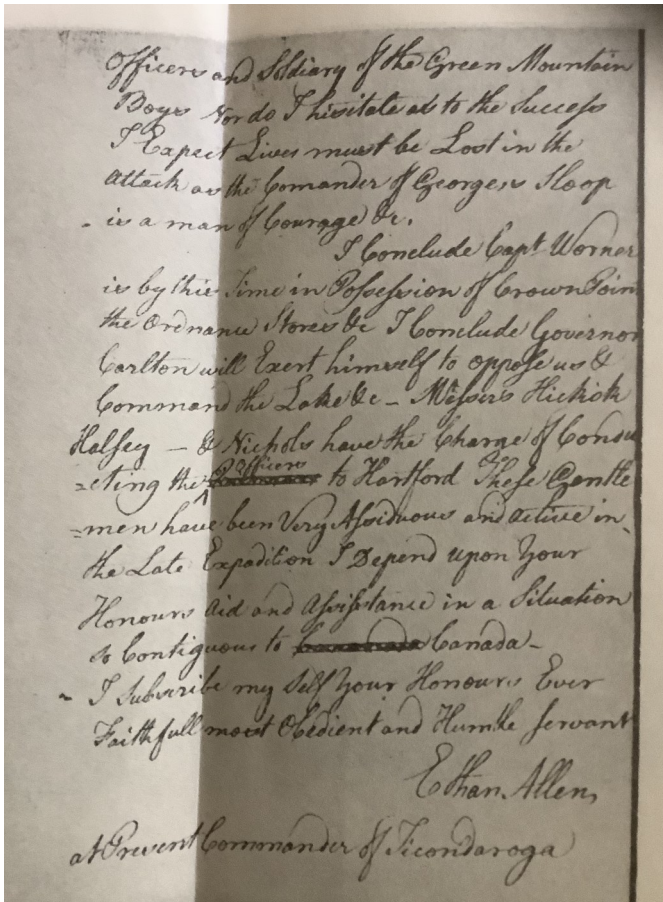 Officers and Soldiary of the Green Mountain
Boys Nor do I hisitate as to the Success
I Expect Lives must be Lost in the
Attack as the Comander of Georges Sloop
is a man of Courage &c.
I Conclude Capt Worner
is by this Time in Possession of Crown Poin
the Ordnance Stores &c I Conclude Governor
Carlton will Exert himself to oppose us &
Command the Lake &c — Messirs Hickok
Halsey — & Nichols have the Charge of Condu
=cting the Officers to Hartford These Gentle
=men have been Very Assiduous and active in
the Late Expadition I Depend upon Your
Honours Aid and Assistance in a Situation
so Contiguous to Canada —
I Subscribe my Self Your Honours Ever
Faithfull most Obedient and Humble Servant
Ethan Allen
at Present Commander of Ticondaroga